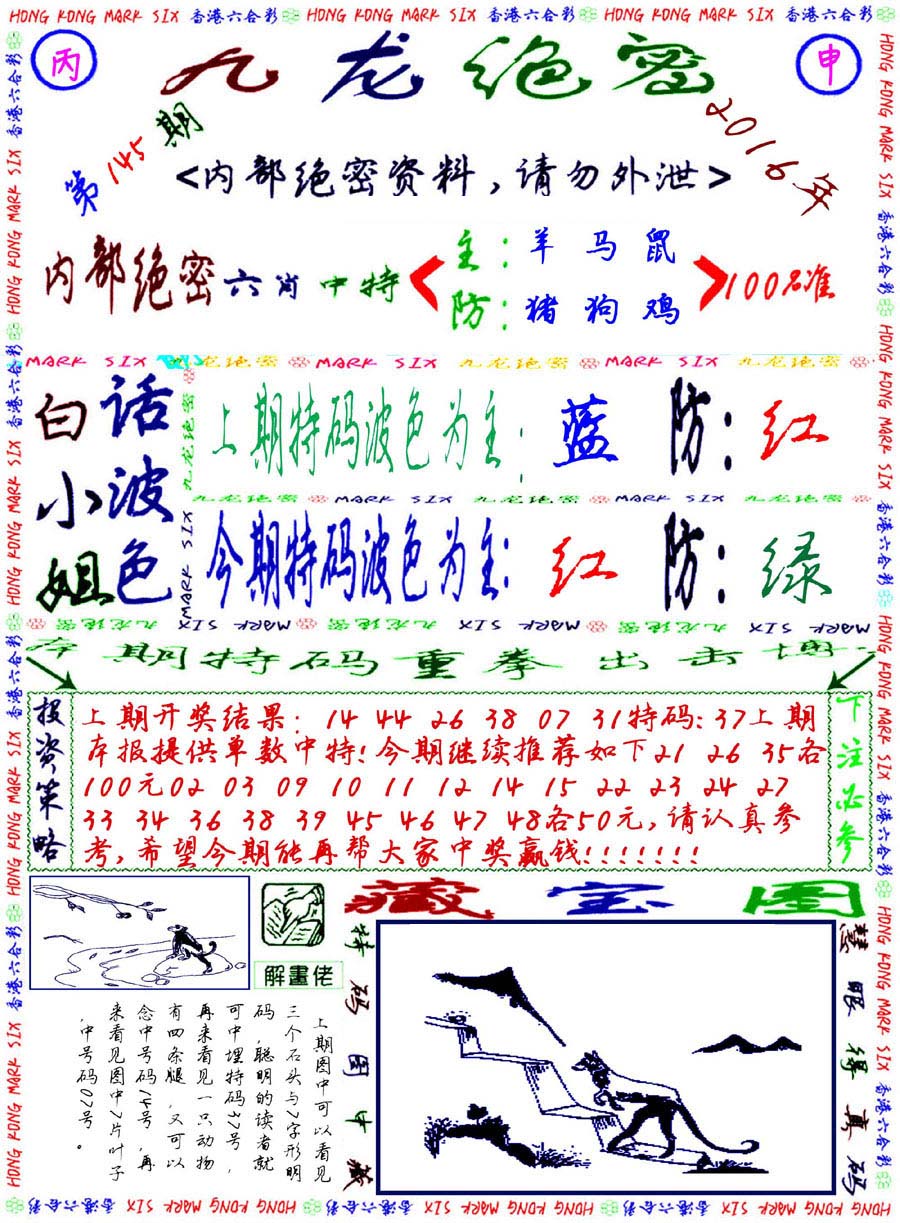 HONG KONG MARK SIX 香港六合彩 HONG KONG MARK SIX 香港六合彩 HONG KONG MARK SIX 香港六合彩
丙
九龙绝密
申
第145期
2016年
<内部绝密资料,请勿外泄>
内部绝密六肖中特
主:羊马鼠
防:猪狗鸡
100%准
MARK SIX 九龙绝密 MARK SIX 九龙绝密 MARK SIX 九龙绝密
白小姐
话波色
上期特码波色为主:蓝 防:红
九龙绝密 MARK SIX 九龙绝密 MARK SIX 九龙绝密
今期特码波色为主:红 防:绿
九龙绝密 MARK SIX 九龙绝密 MARK SIX 九龙绝密 MARK SIX
本期特码重拳出击博一
投资策略
上期开奖结果: 14 44 26 38 07 31特码:37上期
本报提供单数中特!今期继续推荐如下21 26 35各
100元02 03 09 10 11 12 14 15 22 23 24 27
33 34 36 38 39 45 46 47 48各50元,请认真参
考,希望今期能再帮大家中奖赢钱!!!!!!!
下注必参
藏宝图
解畫佬
上期图中可以看见
三个石头与7字形明
码,聪明的读者就
可中埋特码37号,
再来看见一只动物
有四条腿,又可以
念中号码14号,再
来看见图中7片叶子
,中号码07号。
特码图中藏
慧眼得真码
HONG KONG MARK SIX 香港六合彩 HONG KONG MARK SIX 香港六合彩 HONG KONG MARK SIX 香港六合彩